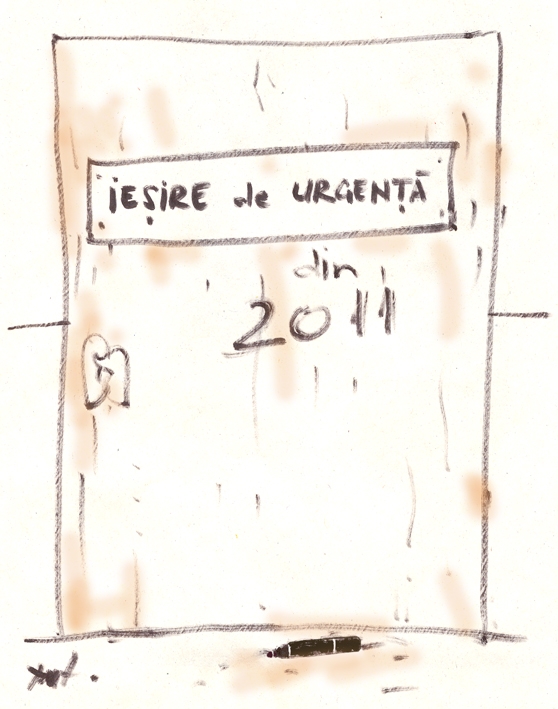 iEȘIRE de URGENȚĂ
din
2011